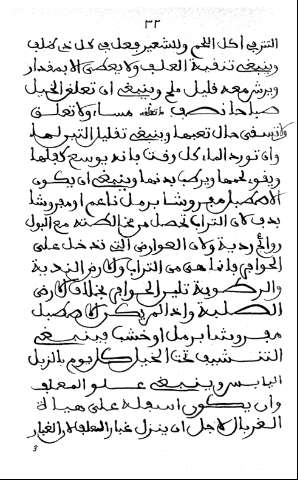 ٣٢
التبن في أكل اللحم وللشعير فعل في كل ذي خلب
وينبغي تنقية العلف ولا يعطى الا بمقدار
ويرش معه قليل ملح وينبغي ان تعلق الخيل
صباحا نصف ومساء ولا تعلق
ولا تسقى حال تعبها وينبغي تقليل التبن لها
وان تورد الماء كل وقت بانه يوسع كفلها
ويقوي لحمها ويركب بدنها وينبغي ان يكون
الاصطبل مفروشا برمل ناعم او مفروشا
بدف لان التراب تحصل من عن الكثه مع البول
روائح ردية ولان العوارض التي تدخل على
الحوافر انما هي من التراب والارض الندية
والركوبة تلين الحوافر بخلاف الارض
الصلبة واذا لم يكن الاصطبل
مفروشا برمل او خشب فينبغي
التنشيف تحت الخيل كل يوم بالزبل
اليابس وينبغي علو المعلف
وان يكون اسفله على هيأة
الغربال لاجل ان ينزل غبار العلف لان الغبار